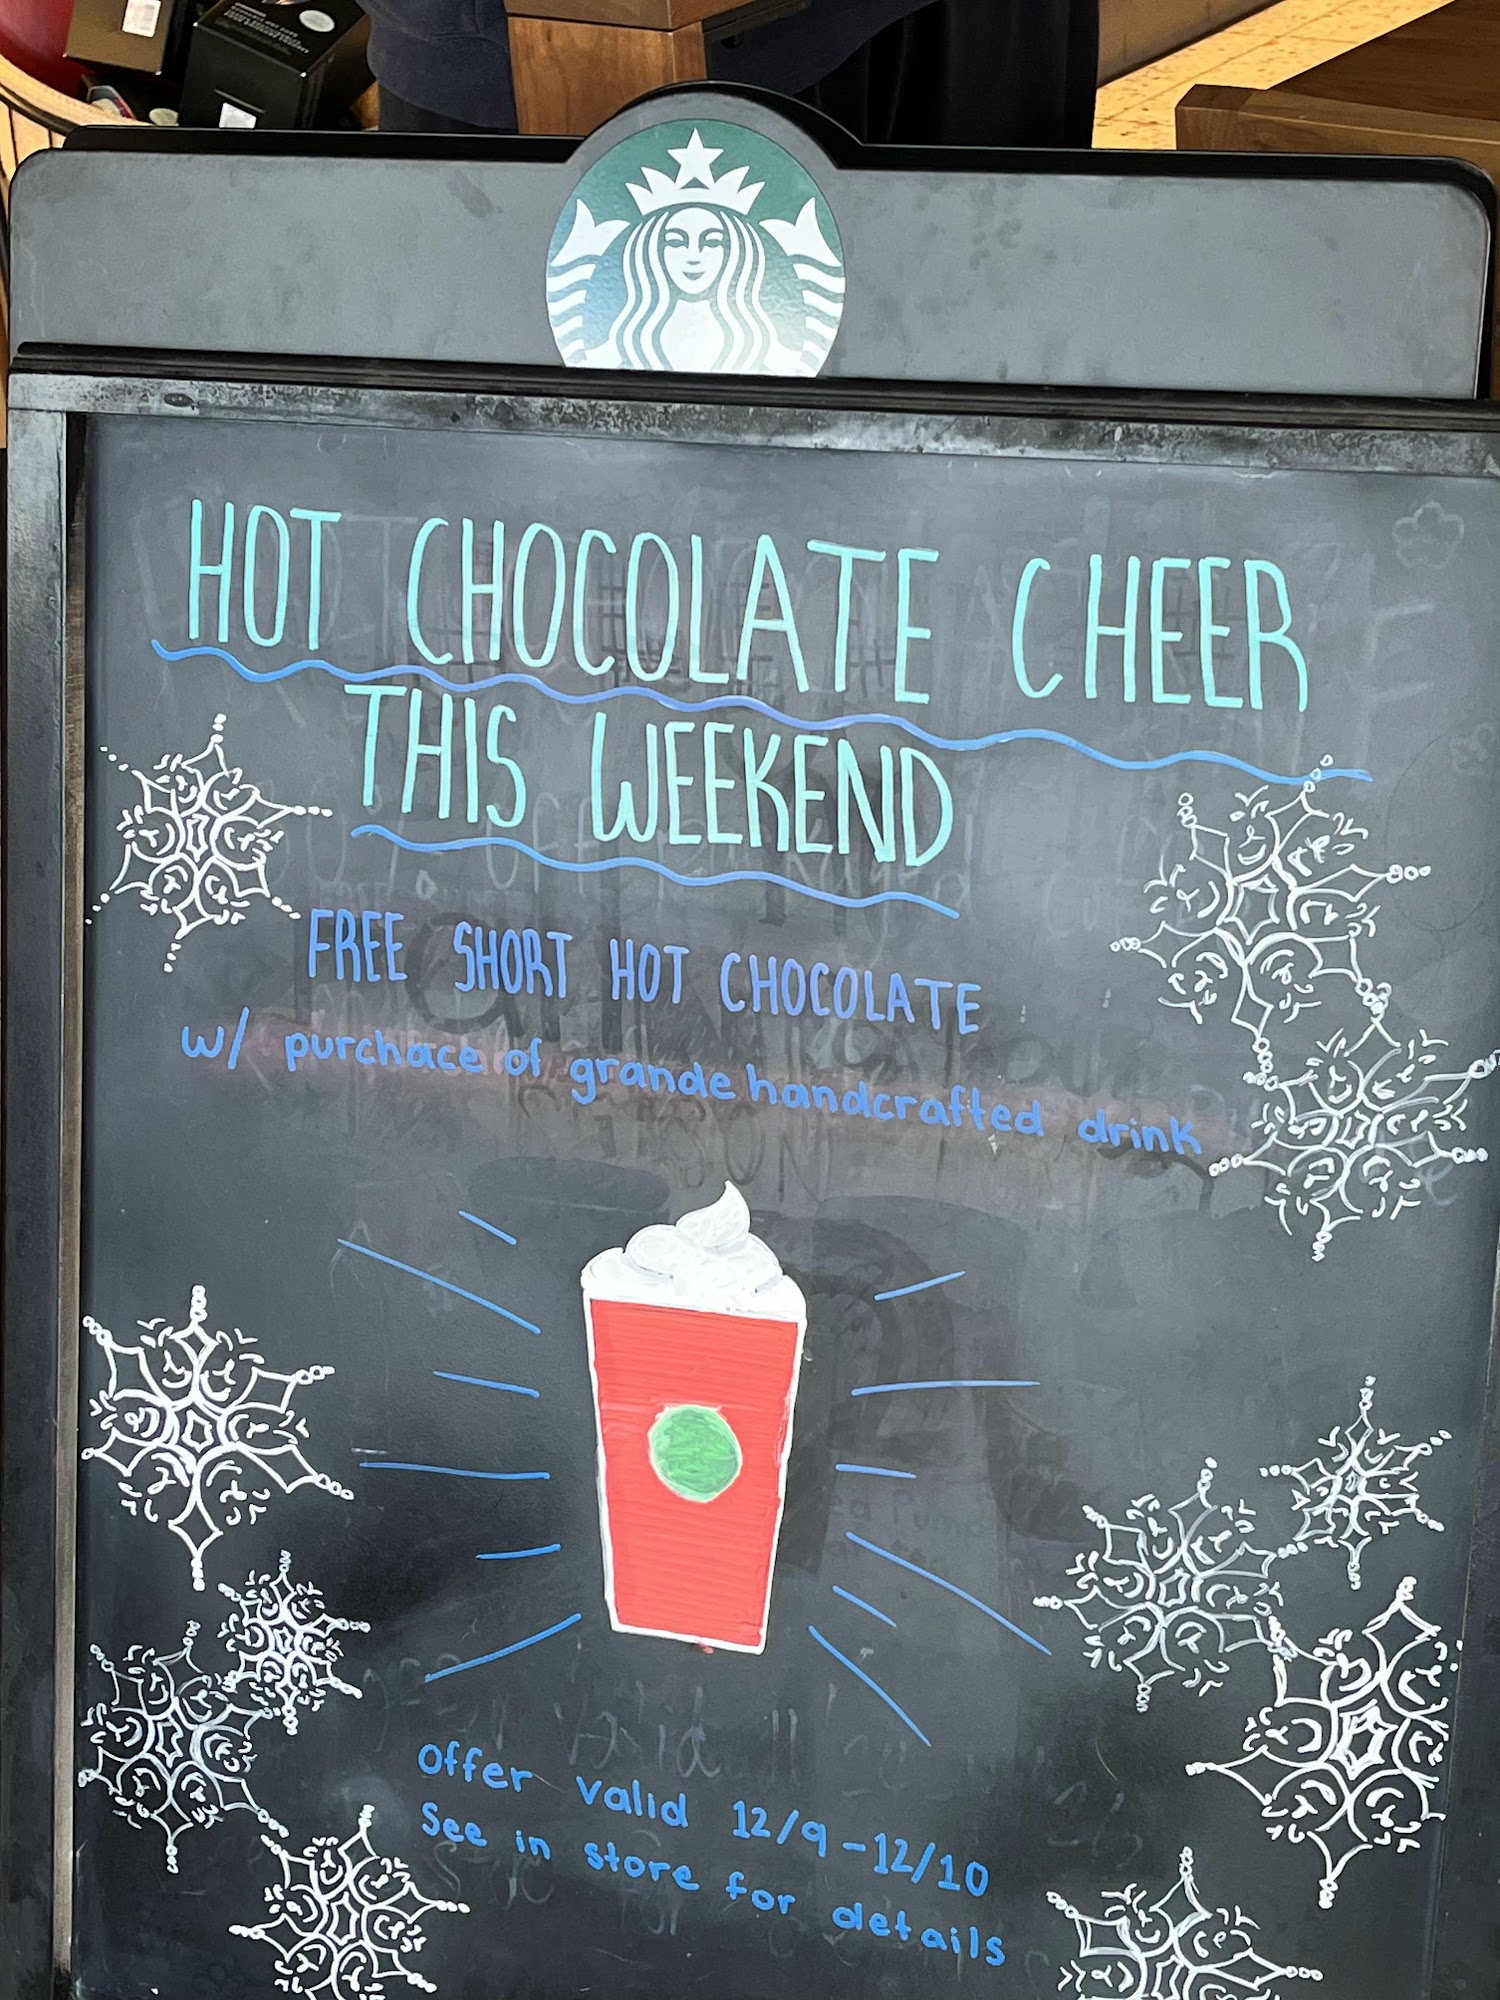 HOT CHOCOLATE CHEER
THIS WEEKEND
FREE SHORT HOT CHOCOLATE
w/ purchace of grande handcrafted drink
offer valid 12/9-12/10
See in store for details